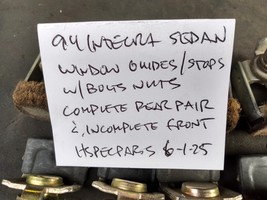 94 INTEGRA SEDAN
WINDOW GUIDES/STOPS
W/BOLTS NUTS
COMPLETE REAR PAIR
2, INCOMPLETE FRONT
HSPECPARTS 6-1-25